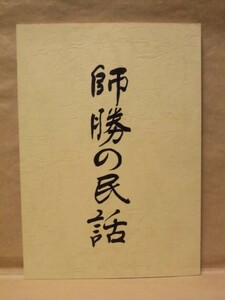 師勝の民話